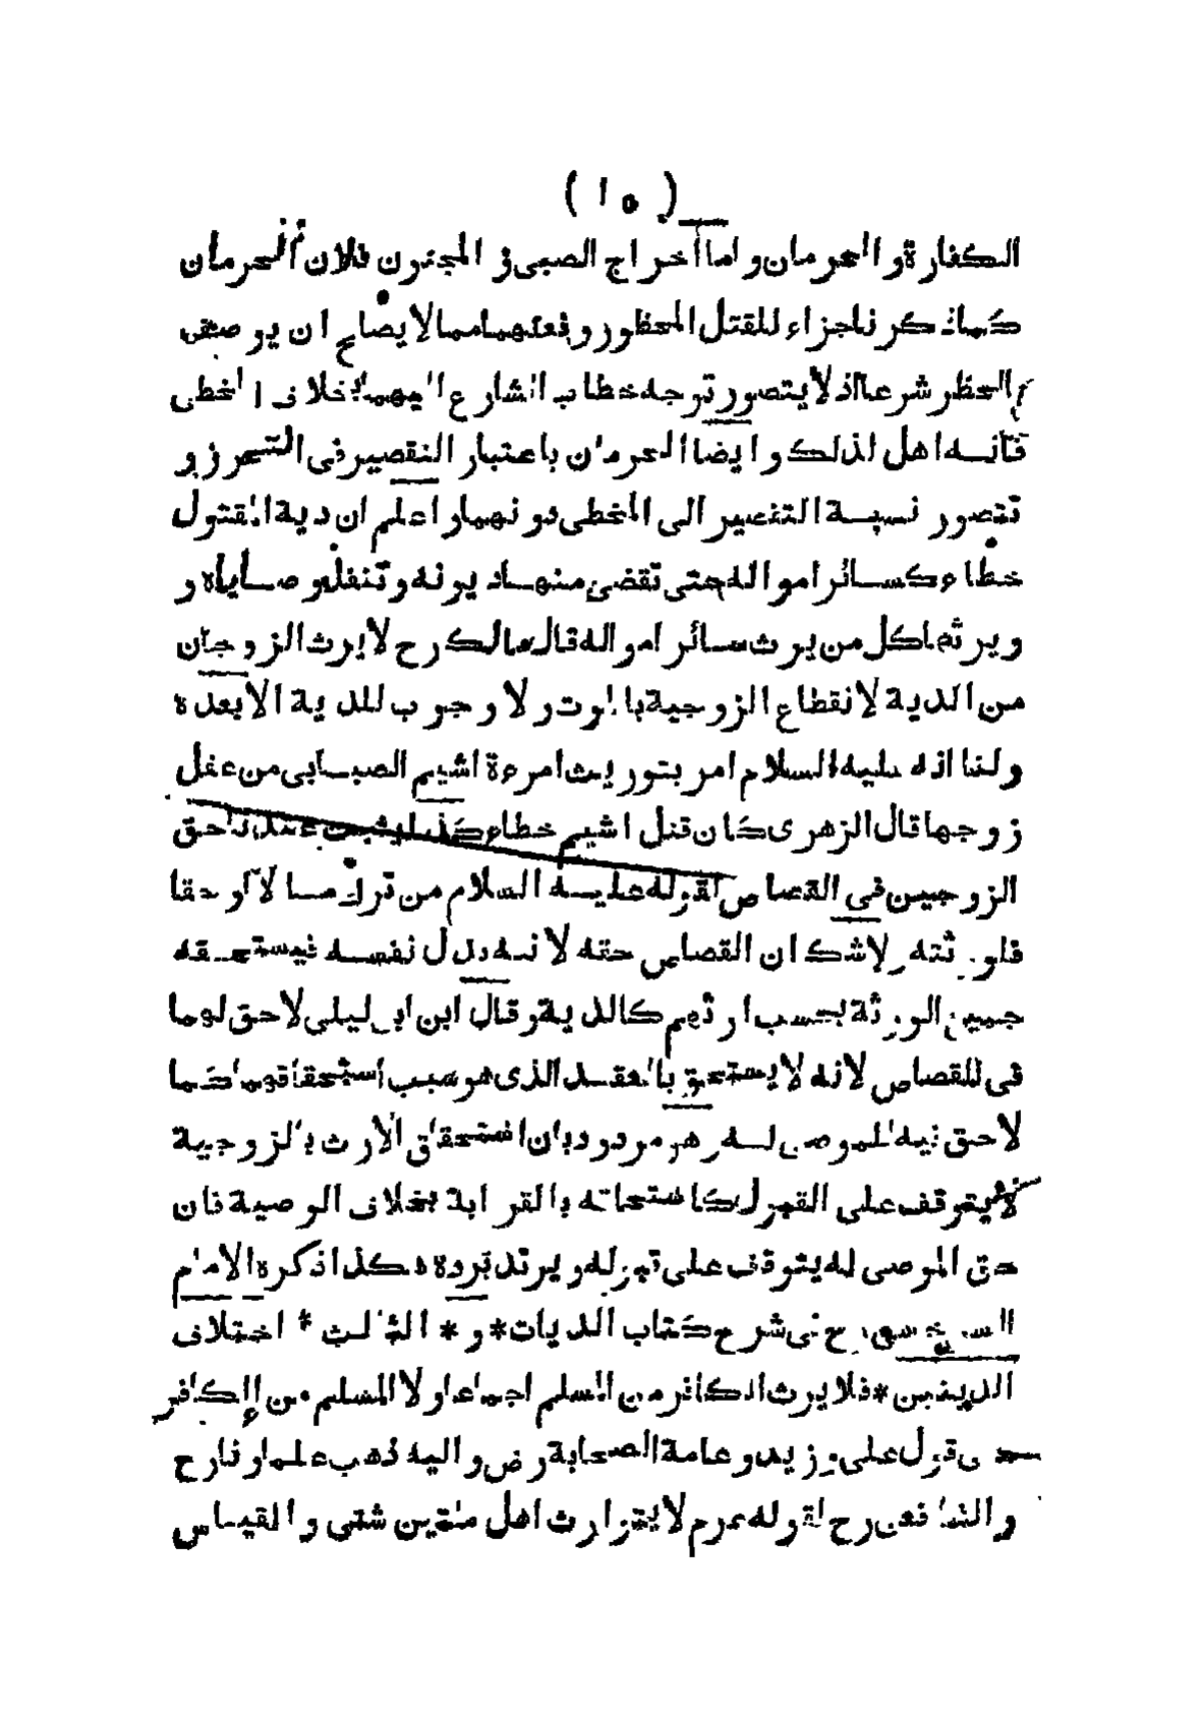 ( ١٥ )
الكفارة و الحرمان و اما اخراج الصبى و المجنون فلان الحرمان
كما ذكرنا جزاء للقتل المحظور و فعلهما مما لا يصلح ان يوصف
بالحظر شرعا اذ لا يتصور توجه خطاب الشارع اليهما بخلاف الخطى
فانه اهل لذلك و ايضا الحرمان باعتبار التقصير فى التحرز و
تتصور نسبة التقصير الى المخطى دونهما و اعلم ان دية المقتول
خطاء كسائر امواله حتى تقضى منها ديونه و تنفذ وصاياه و
ويرثها كل من يرث سائر امواله قال مالك رح لا يرث الزوجان
من الدية لانقطاع الزوجية بالموت و لا وجوب للدية الا بعده
و لنا انه عليه السلام امر بتوريث امرءة اشيم الضبابى من عقل
زوجها قال الزهرى كان قتل اشيم خطاء كذا يثبت عندنا حق
الزوجين فى القصاص لقوله عليه السلام من ترك مالا او حقا
فلورثته و لا شك ان القصاص حقه لانه بدل نفسه فيستحقه
جميع الورثة بحسب ارثهم كالدية و قال ابن ابى ليلى لا حق لهما
فى للقصاص لانه لا يستحق بالعقد الذى هو سبب استحقاقهما كما
لا حق فيه للموصى له و هو مردود بان استحقاق الارث بالزوجية
لا يتوقف على القبول كاستحقاقه بالقرابة بخلاف الوصية فان
حق الموصى له يتوقف على قبوله و يرتد برده هكذا ذكره الامام
السرخسى رح فى شرح كتاب الديات * و * الثالث * اختلاف
الدينين * فلا يرث الكافر من المسلم اجماعا و لا المسلم من الكافر
قول على و زيد و عامة الصحابة رض و اليه ذهب علماونا رح
و الشافعى رح لقوله عم لا يتوارث اهل ملتين شتى و القياس